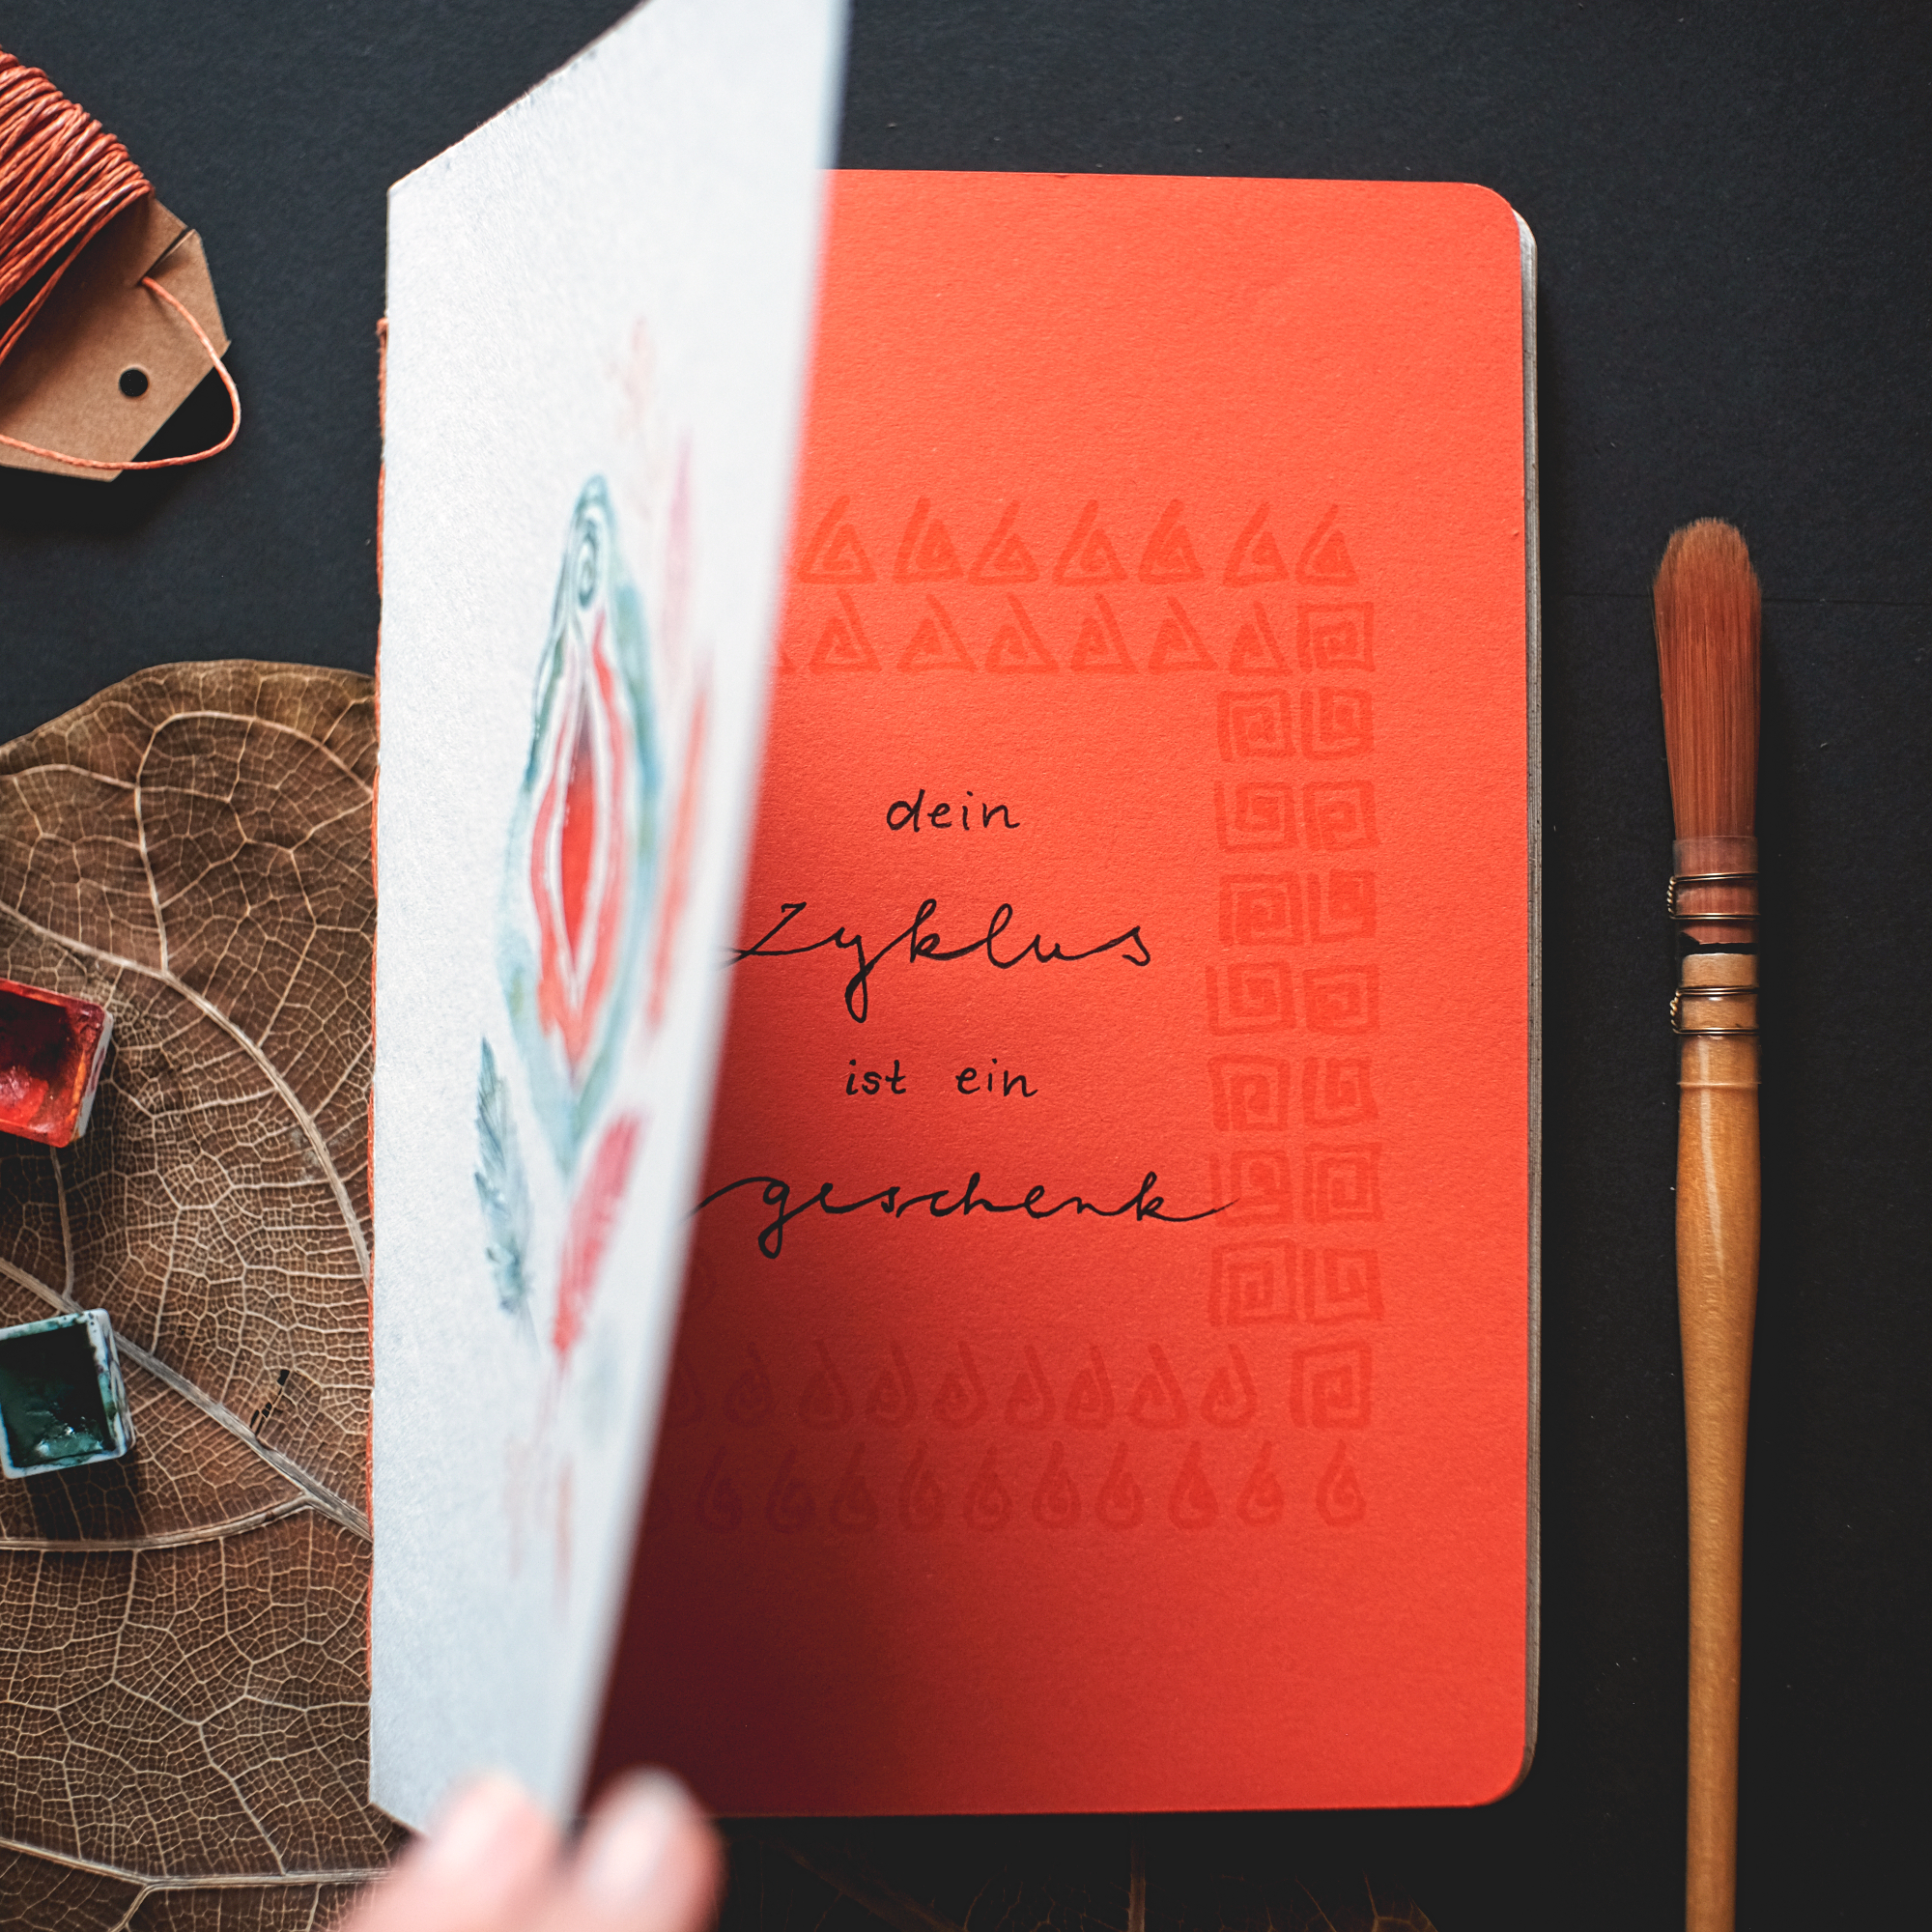 dein
Zyklus
ist ein
geschenk